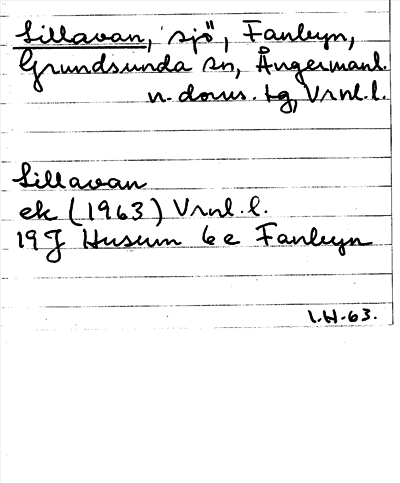 Sillavan, sjö, Fanbyn,
Grundsunda sn, Ångermanl.
n. doms. tg, Vrnl. l.
Sillavan
ek (1963) Vrnl. l.
19J Husum 6e Fanbyn
I.H. 63.